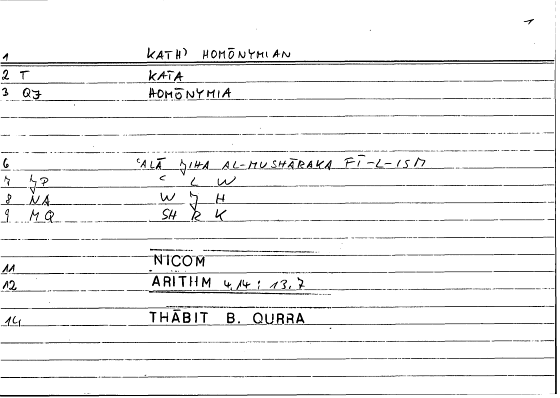 1
1 KATH' HOMŌNYMIAN
2 T KATA
3 QJ HOMŌNYMIA
6 ʿALĀ ǦIHA AL-MUSHĀRAKA FĪ-L-ISM
7 ǦP ʿ L W
8 NA W Ǧ H
9 MQ SH R K
11 NICOM
12 ARITHM 4,14 : 13,7
14 THĀBIT B. QURRA